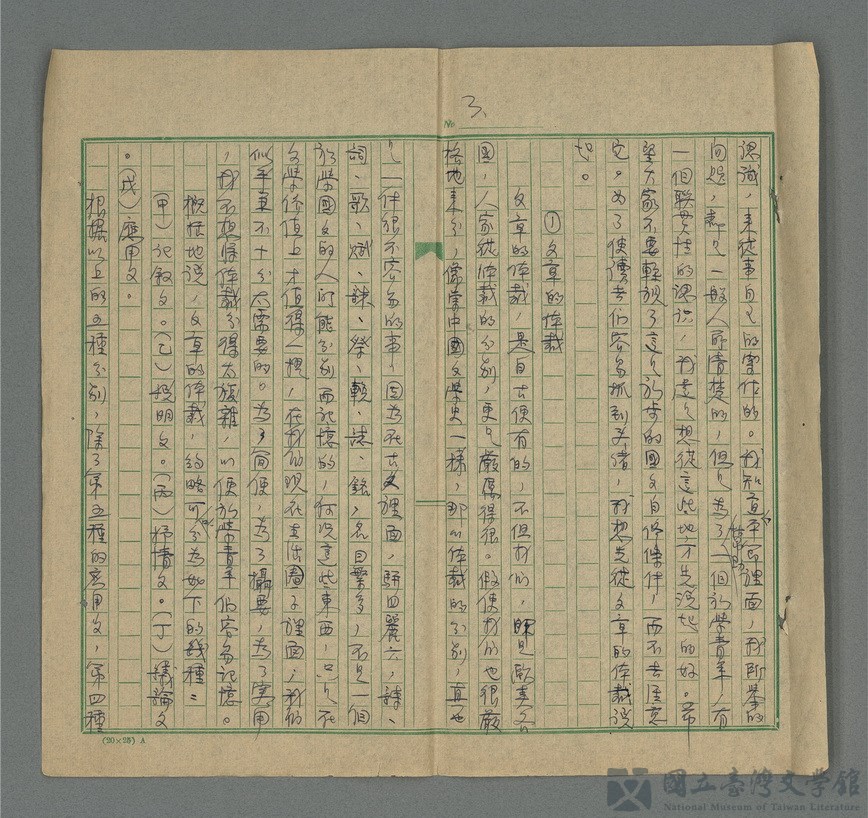 No 3、
認識，來從事自己的寫作的。我知道本節裡面，我所舉的
問題，都是一般人所清楚的，但是為了幫助一個初學青年，有
一個聯貫性的認識，我還是想從這些地方先說起的好。希
望大家不要輕視了這是初步的國文自修條件，而不去注意
它。為了使讀者們容易抓到頭緒，我想先從文章的体裁說
起。
①文章的体裁
文章的体裁，是自古便有的，不但我們，歐美各
國，人家從体裁的分別，更是嚴厲得很。假使我們也很嚴
格地來分，像寫中國文學史一樣，那麼体裁的分別，真也
是一件很不容易的事，因為在古文裡面，駢四麗六，詩、
詞、歌、賦、誄、祭、輓、誌、銘，名目繁多，不是一個
初學國文的人所能分別而記憶的，何況這些東西，只是在
文學價值上才值得一提，在我們現在生活圈子裡面，我們
似乎並不十分需要的。為了簡便，為了撮要，為了實用
，我不想將体裁分得太複雜，以便初學青年們容易記憶。
概括地說，文章的体裁，約略可分為如下的幾種：
（甲）記敘文。（乙）說明文。（丙）抒情文。（丁）議論文
。（戊）應用文。
根據以上的五種分別，除了第五種的應用文，第四種
(20×25) A
國立臺灣文学館
National Museum of Taiwan Literature